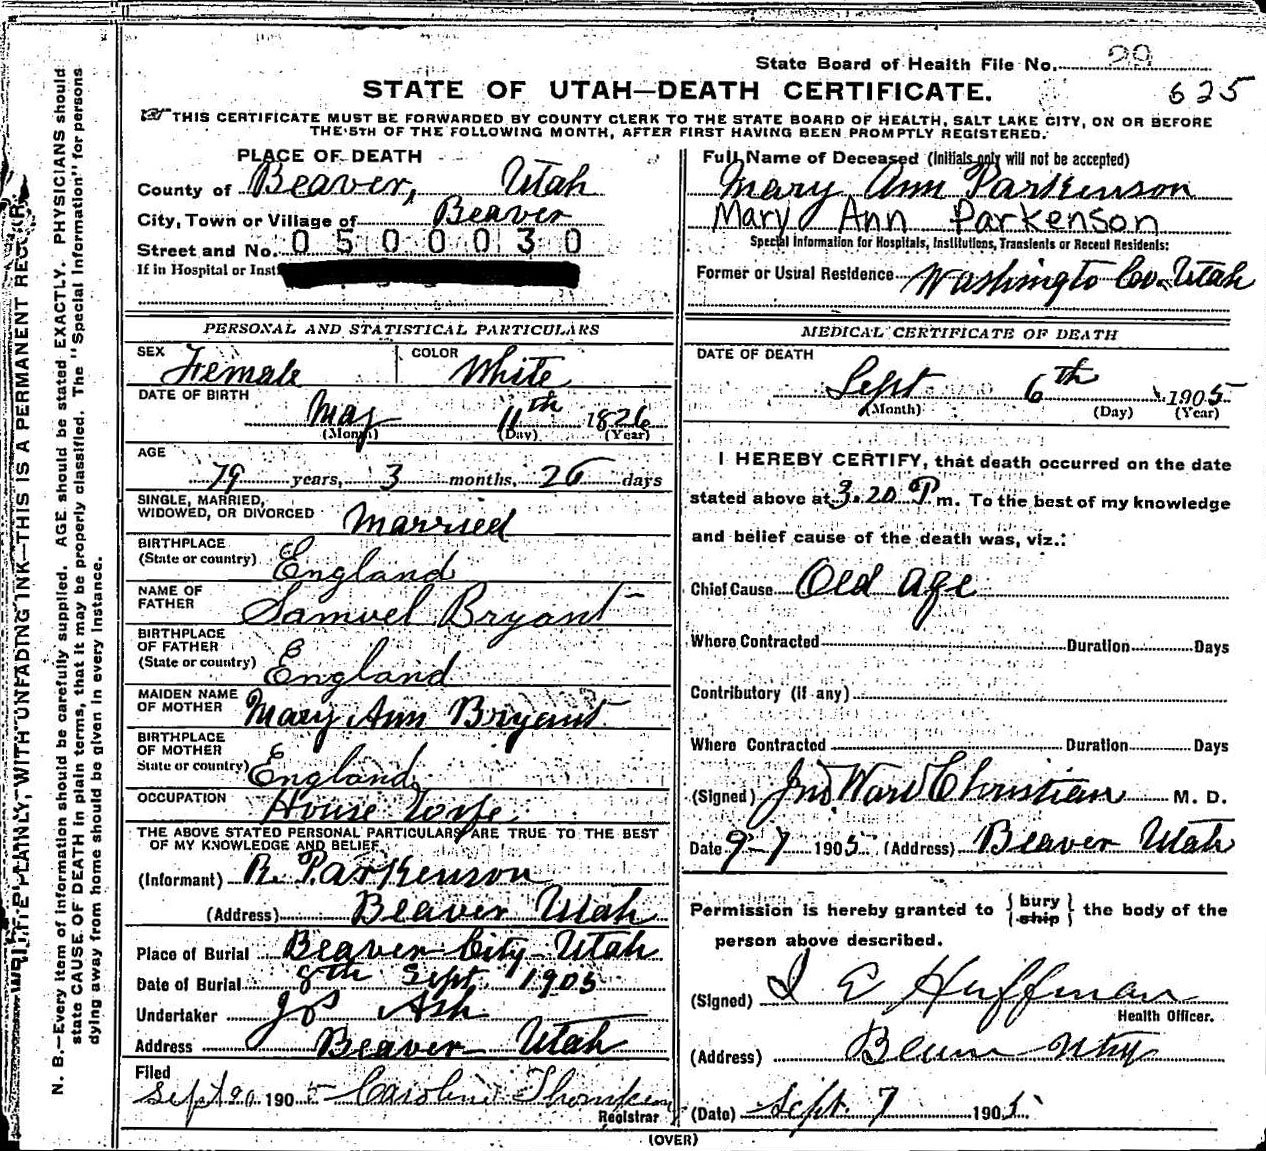 State Board of Health File No. 29
STATE OF UTAH—DEATH CERTIFICATE.
625
THIS CERTIFICATE MUST BE FORWARDED BY COUNTY CLERK TO THE STATE BOARD OF HEALTH, SALT LAKE CITY, ON OR BEFORE
THE 5TH OF THE FOLLOWING MONTH, AFTER FIRST HAVING BEEN PROMPTLY REGISTERED.
PLACE OF DEATH
County of Beaver, Utah
City, Town or Village of Beaver
Street and No. 0500030
If in Hospital or Inst
PERSONAL AND STATISTICAL PARTICULARS
SEX Female COLOR White
DATE OF BIRTH
May 11th 1826
(Month) (Day) (Year)
AGE
79 years, 3 months, 26 days
SINGLE, MARRIED,
WIDOWED, OR DIVORCED Married
BIRTHPLACE
(State or country) England
NAME OF
FATHER Samuel Bryant
BIRTHPLACE
OF FATHER
(State or country) England
MAIDEN NAME
OF MOTHER Mary Ann Bryant
BIRTHPLACE
OF MOTHER
State or country) England
OCCUPATION House Wife
THE ABOVE STATED PERSONAL PARTICULARS ARE TRUE TO THE BEST
OF MY KNOWLEDGE AND BELIEF
(Informant) R. Parkenson
(Address) Beaver Utah
Place of Burial Beaver City Utah
Date of Burial 8th Sept. 1905
Undertaker Jos Ash
Address Beaver Utah
Filed
Sept 20 1905 Caroline Thompson
Registrar
Full Name of Deceased (Initials only will not be accepted)
Mary Ann Parkenson
Mary Ann Parkenson
Special Information for Hospitals, Institutions, Transients or Recent Residents:
Former or Usual Residence Washingto Co. Utah
MEDICAL CERTIFICATE OF DEATH
DATE OF DEATH
Sept 6th 1905
(Month) (Day) (Year)
I HEREBY CERTIFY, that death occurred on the date
stated above at 3.20 P m. To the best of my knowledge
and belief cause of the death was, viz.:
Chief Cause Old Age
Where Contracted Duration Days
Contributory (if any)
Where Contracted Duration Days
(Signed) Jno. Ward Christian M. D.
Date 9-7 1905 (Address) Beaver Utah
Permission is hereby granted to {bury ship} the body of the
person above described.
(Signed) J E Huffman
Health Officer.
(Address) Beaver Utah
(Date) Sept. 7 1905
(OVER)
WRITE PLAINLY, WITH UNFADING INK—THIS IS A PERMANENT RECORD
N. B.—Every item of information should be carefully supplied. AGE should be stated EXACTLY. PHYSICIANS should
state CAUSE OF DEATH in plain terms, that it may be properly classified. The "Special Information" for persons
dying away from home should be given in every instance.